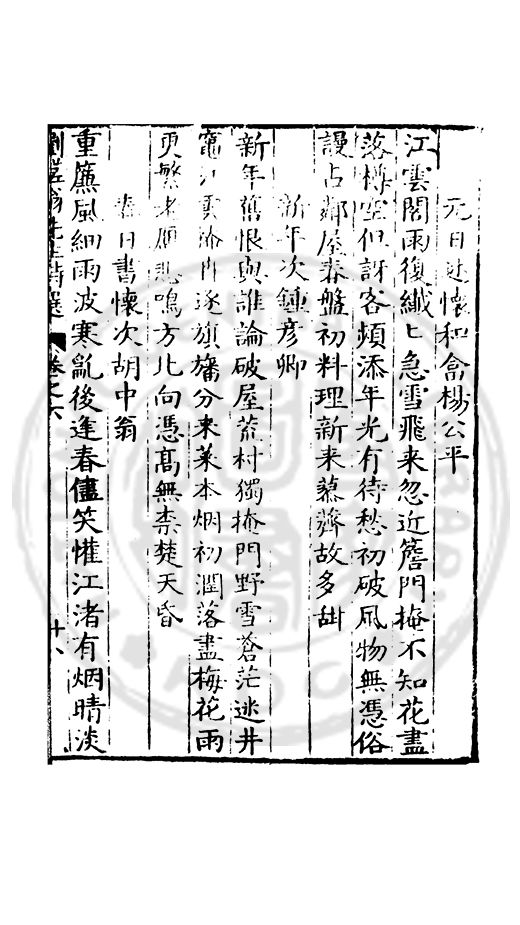 元日述懷和畣楊公平
江雲閣雨復纖〻急雪飛来忽近簷門掩不知花盡
落樽空但訝客頻添年光有待愁初破風物無憑俗
謾占鄰屋春盤初料理新来薺故多甜
新年次鍾彦卿
新年舊恨與誰論破屋荒村獨掩門野雪蒼茫迷井
竈江雲冉逐旗旛分来菜本烟初潤落盡梅花雨
更繁老雁悲鳴方北向憑髙無柰楚天昏
春日書懷次胡中翁
重簾風細雨波寒亂後逢春儘笑懽江渚有烟晴淡
先生詩選 卷之六 十八